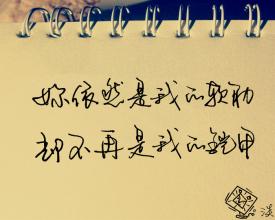 妳依然是我的软肋
却不再是我的鎧甲